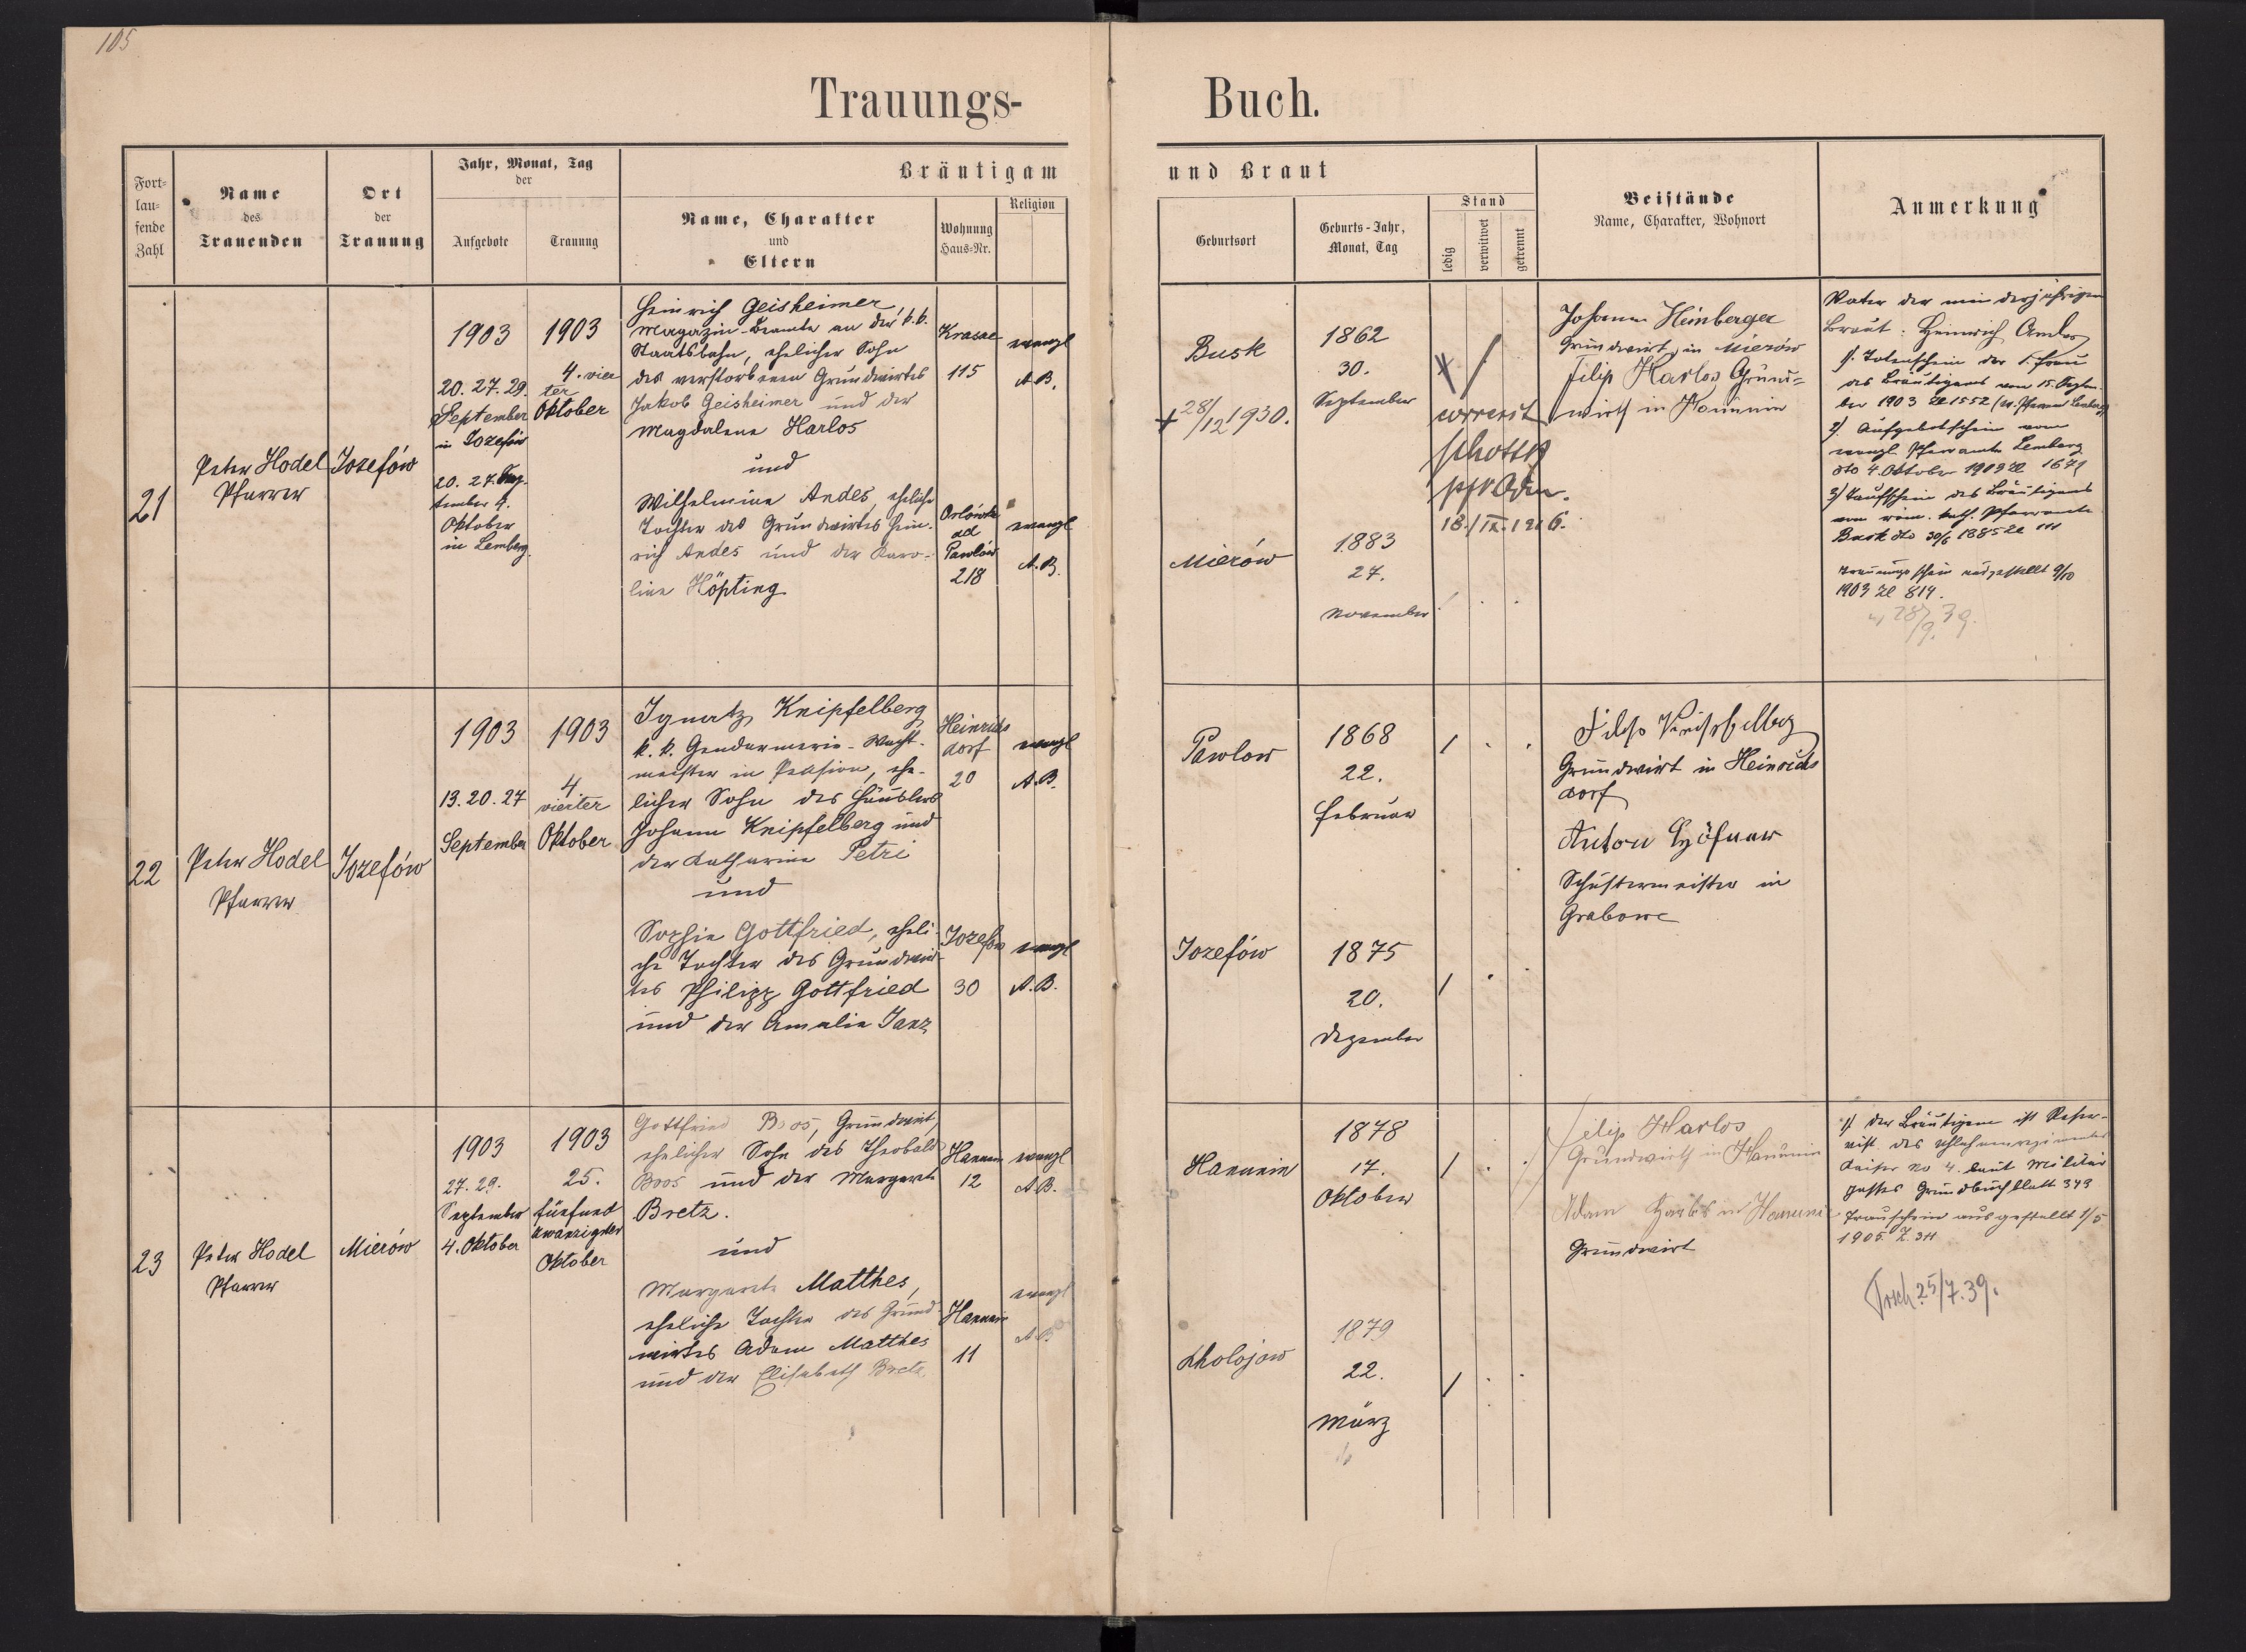 105
Trauungs- Buch.
Fort-
lau-
fende
Zahl
Name
des
Trauenden
Ort
der
Trauung
Jahr, Monat, Tag
der
Aufgebote
Trauung
Bräutigam und Braut
Name, Charakter
und
Eltern
Wohnung
Haus-Nr.
Religion
Geburtsort
Geburts-Jahr,
Monat, Tag
Stand
ledig
verwitwet
getrennt
Beistände
Name, Charakter, Wohnort
Anmerkung
21
Peter Hodel
Pfarrer
Josefów
1903
20. 27. 29.
September
in Josefów
20. 27. Sep-
tember 4.
Oktober
in Lemberg.
1903
4. vier
ter
Oktober
Heinrich Geisheimer,
Magazin-Beamte an der k.k.
Staatsbahn, ehelicher Sohn
des verstorbenen Grundwirtes
Jakob Geisheimer und der
Magdalena Harlos
und
Wilhelmine Andes, eheliche
Tochter des Grundwirtes Hein-
rich Andes und der Karo-
line Höpting
Krasne
115
evangl
A.B.
ad
Pawlów
218
evangl
A.B.
Busk
+ 28/12 1930.
Mierów
1862
30.
September
1883
27.
November
correxit
Schottk
18./IX. 1926.
Johann Heinberger
Grundwirt in Mierów
Filip Harlos Grund-
wirth in Hanunin
Vater der minderjährigen
Braut: Heinrich Andes
1/. Totenschein der 1. Frau
des Bräutigams vom 15. Septem-
ber 1903 Zl 1552 (ev. Pfarramt Lemberg)
2/. Aufgebotschein vom
evangl Pfarramte Lemberg
dto 4. Oktober 1903 Zl 1679
3/ Taufschein des Bräutigams
vom röm. kath. Pfarramte
Busk dto 30/6 1885 Zl 111
Trauungsschein ausgestellt 9/10
1903 Zl 819.
28/9. 39.
22
Peter Hodel
Pfarrer
Jozefów
1903
13. 20. 27
September
1903
4
vierter
Oktober
Ignatz Knipfelberg
k. k. Gendarmerie-Wacht-
meister in Pension, ehe-
licher Sohn des Häuslers
Johann Knipfelberg und
der Katharina Petri
und
Sophie Gottfried, eheli-
che Tochter des Grundwir-
tes Philipp Gottfried
und der Amalie Janz
Heinrichs
dorf
20
evangl
A.B.
Jozefów
30
evangl
A.B.
Pawlow
Jozefów
1868
22.
Februar
1875
20.
Dezember
Grundwirt in Heinrichs
dorf
Anton
Schustermeister in
Grabowc
23
Peter Hodel
Pfarrer
Mierów
1903
27. 29.
September
4. Oktober
1903
25.
fünfund
zwanzigster
Oktober
Gottfried Boos, Grundwirt,
ehelicher Sohn des Theobald
Boos und der Margarete
Bretz.
und
Margarete Matthes,
eheliche Tochter des Grund-
wirtes Adam Matthes
und der Elisabeth Bretz
Hanunin
12
evangl
A.B.
Hanunin
11
evangl
A.B.
Hanunin
Cholojow
1878
17.
Oktober
1879
22.
März
Filip Harlos
Grundwirth in Hanunin
Adam Harlos in Hanunin
Grundwirt
1/ Der Bräutigam ist Reser-
vist des Uhlahnenregimentes
Kaiser No 4. laut Militär
passes Grundbuchblatt 343
Trauschein ausgestellt 1/5
1905. Z. 311
Trsch. 25/7. 39.